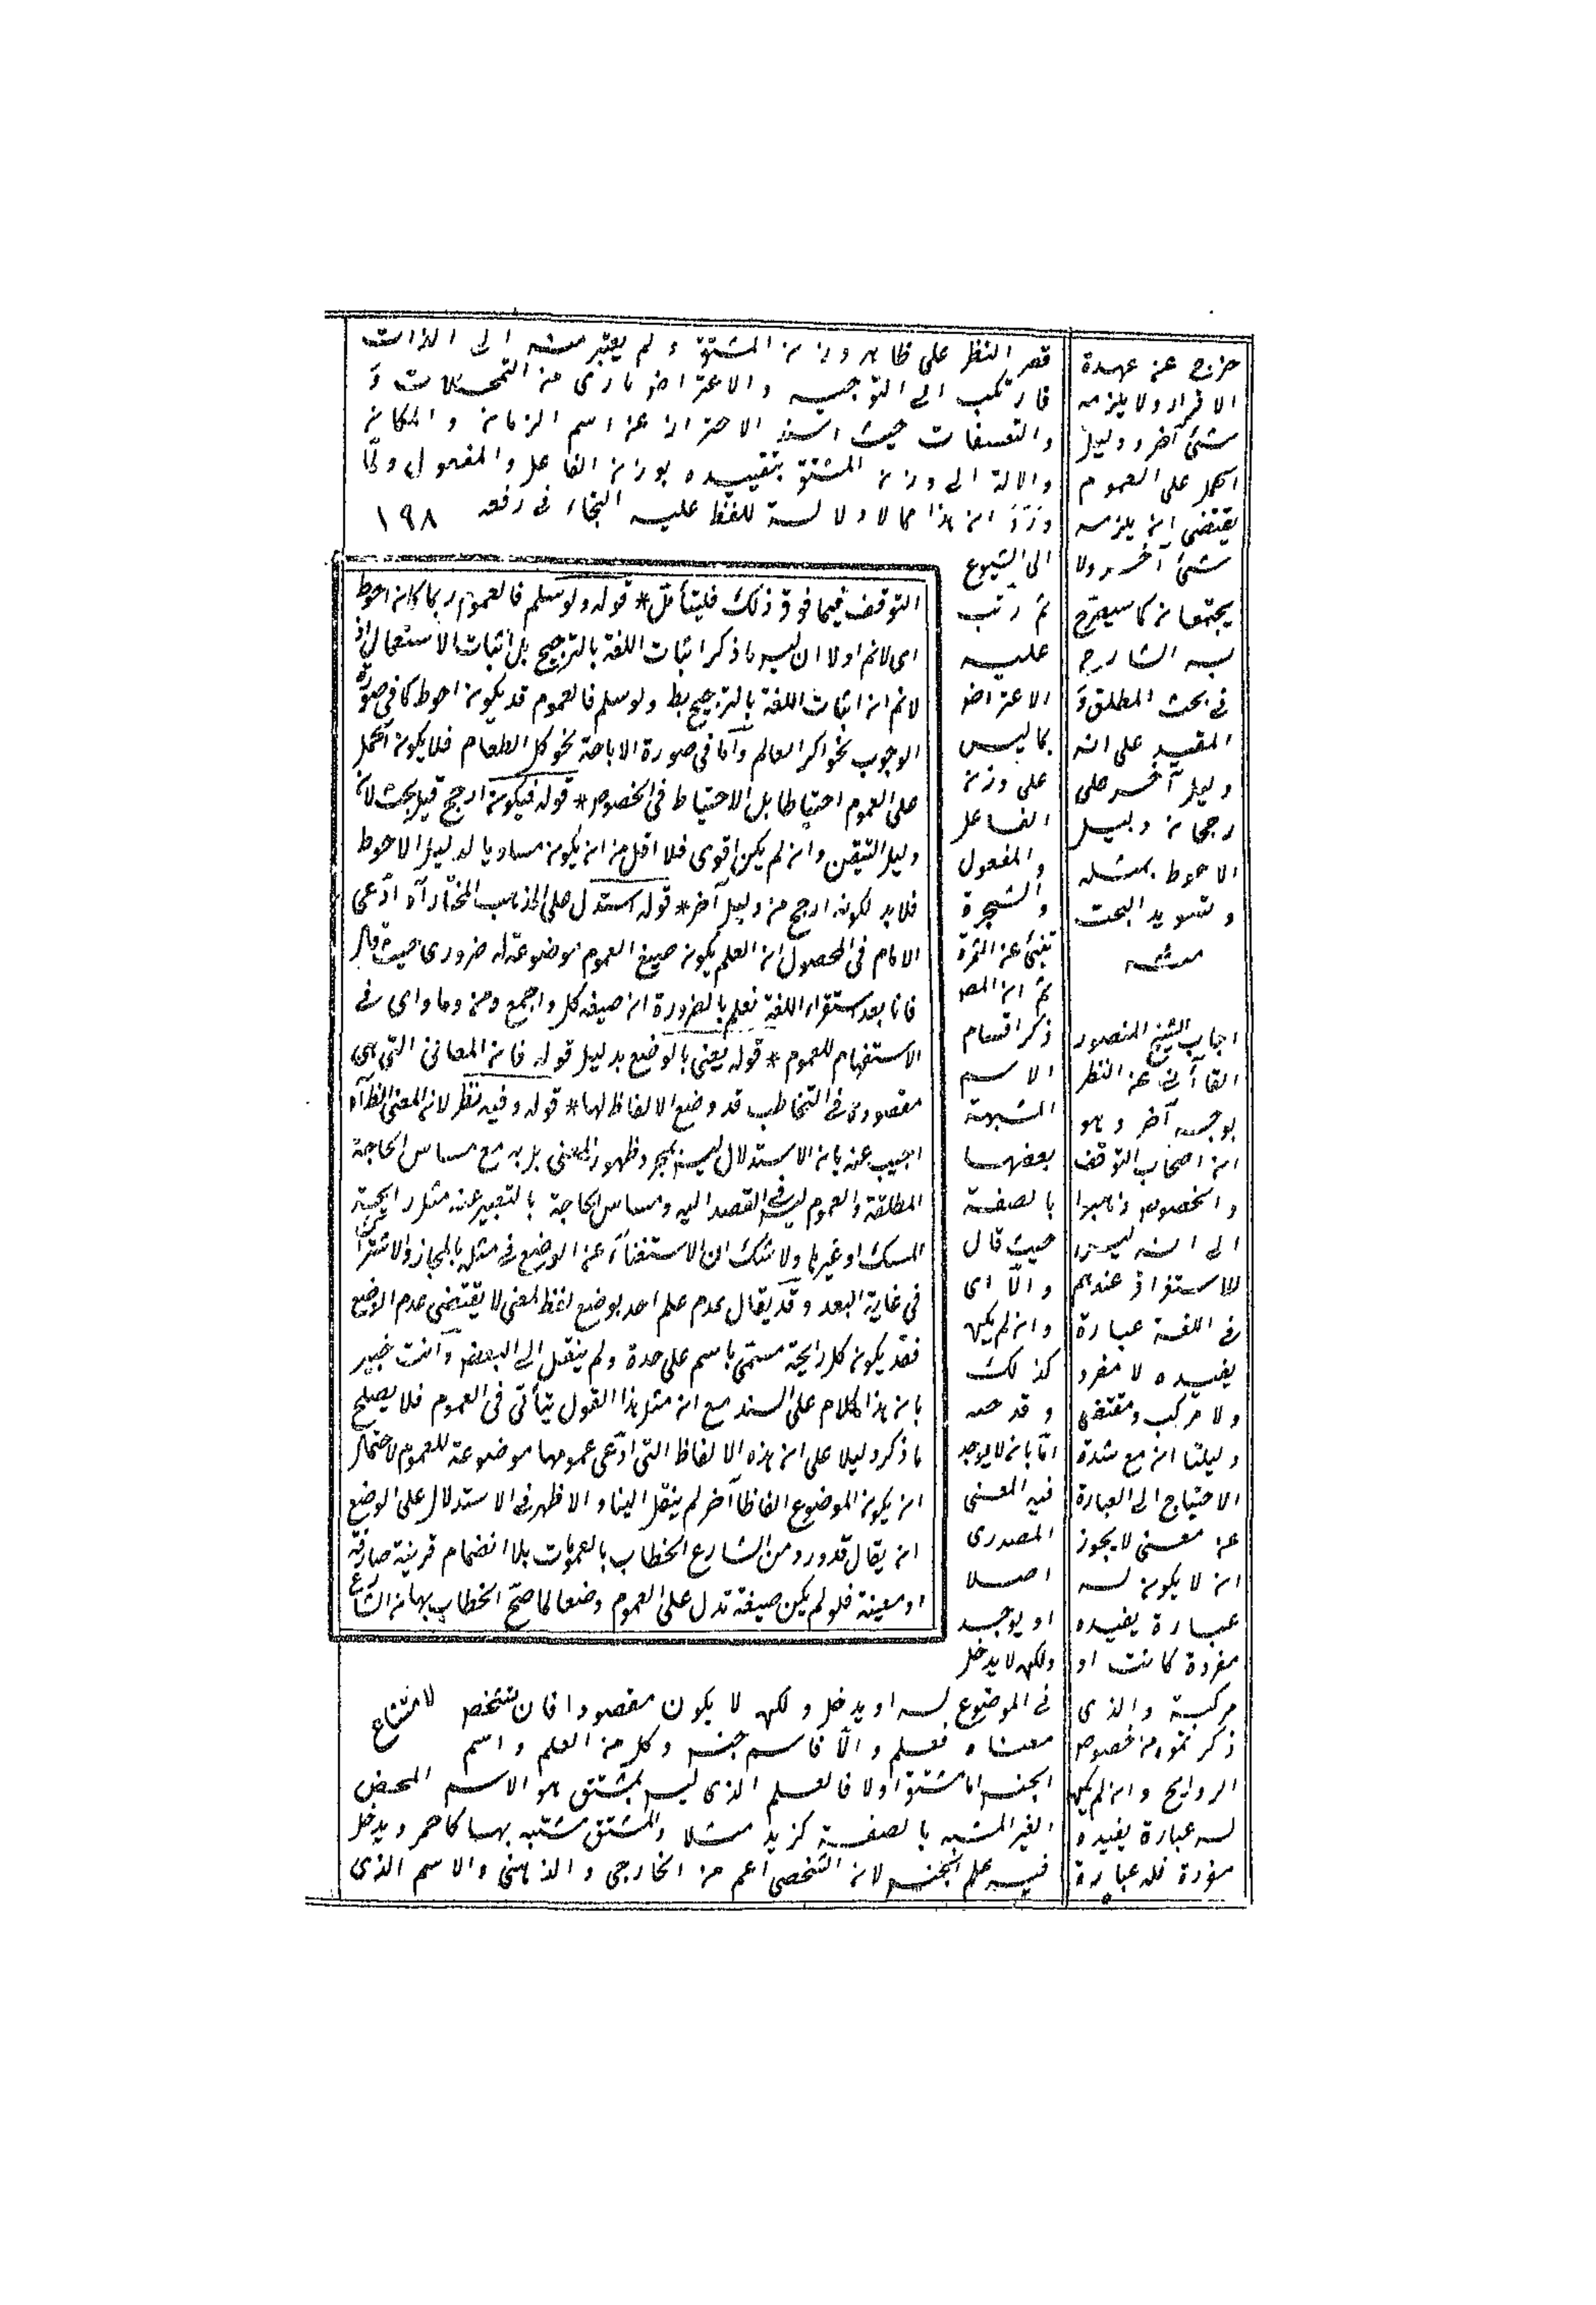 قصر النظر على ظاهر وزن المشتق ولم يعتبر منه الى الذات
فارتكب الى التوجيه والاعتراض ما رى من التمحلات و
والتعسفات حيث اسند الاحتراز عن اسم الزمان والمكان
والالة الى وزن المشتق بتقييده بوزن الفاعل والمفعول ولما
ورد ان هذا مما لا دلالة للفظ عليه التجاء فى رفعه ١٩٨
الى الشيوع
ثم رتب
عليه
الاعتراض
بما ليس
على وزن
الفاعل
والمفعول
والشجرة
تنبئ عن الثمرة
ثم ان المص
ذكر اقسام
الاسم
المشبهة
بعضها
بالصفة
حيث قال
والا اى
وان لم يكن
كذلك
وقد صه
اما بان لا يوجد
فيه المعنى
المصدرى
اصلا
او يوجد
ولكن لا يدخل
فى الموضوع له او يدخل ولكن لا يكون مقصودا فان تشخص
معناه فعلم والا فاسم جنس وكل من العلم واسم
الجنس اما مشتق اولا فالعلم الذى ليس بمشتق هو الاسم المحض
الغير المشبه بالصفة كزيد مثلا والمشتق مشتبه بها كاحمر ويدخل
فيه علم الجنس لان الشخصى اعم من الخارجى والذهنى والاسم الذى
التوقف فيما فوق ذلك فليتأمل * قوله ولو سلم فالعموم ربما كان احوط
اى لانم اولا ان ليس ما ذكر اثبات اللغة بالترجيح بل اثبات الاستعمال اذ
لانم ان اثبات اللغة بالترجيح بط ولو سلم فالعموم قد يكون احوط كما فى صورة
الوجوب نحو اكرم العالم واما فى صورة الاباحة نحو كل الطعام فلا يكون الحمل
على العموم احتياطا بل الاحتياط فى الخصوص * قوله فيكون ارجح قيل بحث لان
دليل التيقن وان لم يكن اقوى فلا اقل من ان يكون مساويا لدليل الاحوط
فلا بد لكونه ارجح من دليل آخر * قوله استدل على المذهب المختار آه ادعى
الامام فى المحصول ان العلم بكون صيغ العموم موضوعة له ضرورى حيث قال
فانا بعد استقراء اللغة نعلم بالضرورة ان صيغة كل واجمع ومن وما واى فى
الاستفهام للعموم * قوله يعنى بالوضع بدليل قوله فان المعانى التى هى
مقصودة فى التخاطب قد وضع الالفاظ لها * قوله وفيه نظر لان المعنى الظ آه
اجيب عنه بان الاستدلال ليس بمجرد ظهور المعنى بل به مع مساس الحاجة
المطلقة والعموم ليس فى القصد اليه ومساس الحاجة بالتعبير عنه مثل رايحة
المسك او غيرها ولا شك ان الاستغناء عن الوضع فى مثله بالمجاز والاشتراك
فى غاية البعد وقد يقال عدم علم احد بوضع لفظ لمعنى لا يقتضى عدم الوضع
فقد يكون كل رايحة مسمى باسم على حدة ولم ينقل الى البعض وانت خبير
بان هذا كلام على السند مع ان مثل هذا القول يتأتى فى العموم فلا يصلح
ما ذكر دليلا على ان هذه الالفاظ التى ادعى عمومها موضوعة للعموم لاحتمال
ان يكون الموضوع الفاظا آخر لم ينقل الينا والاظهر فى الاستدلال على الوضع
ان يقال قد ورد من الشارع الخطاب بالعمومات بلا انضمام قرينة صارفة
او معينة فلو لم يكن صيغة تدل على العموم وضعا لما صح الخطاب بها من الشارع
لامتناع
خرج عن عهدة
الافراد ولا يلزمه
شئ آخر ودليل
الحمل على العموم
يقتضى ان يلزمه
شئ آخر ولا
يجتمعان كما سيصرح
به الشارح
فى بحث المطلق و
المقيد على انه
دليل آخر على
رجحان دليل
الاحوط بمثله
وتسويد البحث
منه
اجاب الشيخ المنصور
القاآنى عن النظر
بوجه آخر وهو
ان اصحاب التوقف
والخصوص ذهبوا
الى انه ليس
للاستغراق عندهم
فى اللغة عبارة
يفيده لا مفرد
ولا مركب ومقتضى
دليلنا ان مع شدة
الاحتياج الى العبارة
عن معنى لا يجوز
ان لا يكون له
عبارة يفيده
مفردة كانت او
مركبة والذى
ذكرتموه من خصوص
الروايح وان لم يكن
له عبارة يفيده
مفردة فله عبارة